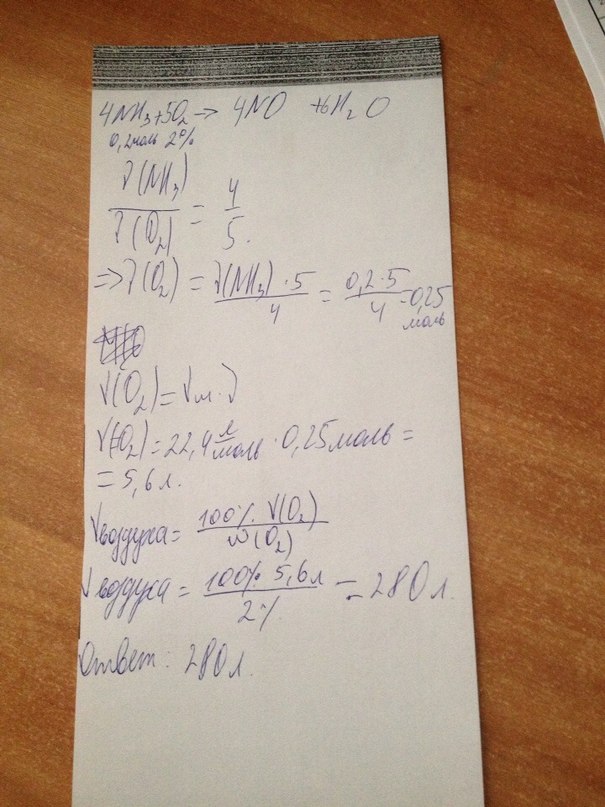 4NH₃+5O₂ → 4NO +6H₂O
0,2моль 2%
ν(NH₃)/ν(O₂) = 4/5.
=> ν(O₂) = ν(NH₃)·5/4 = 0,2·5/4 = 0,25 моль
V(O₂) = Vм·ν
V(O₂) = 22,4 л/моль · 0,25 моль =
= 5,6 л.
Vвоздуха = 100%·V(O₂)/ω(O₂)
Vвоздуха = 100% 5,6л/2% = 280 л.
Ответ: 280 л.